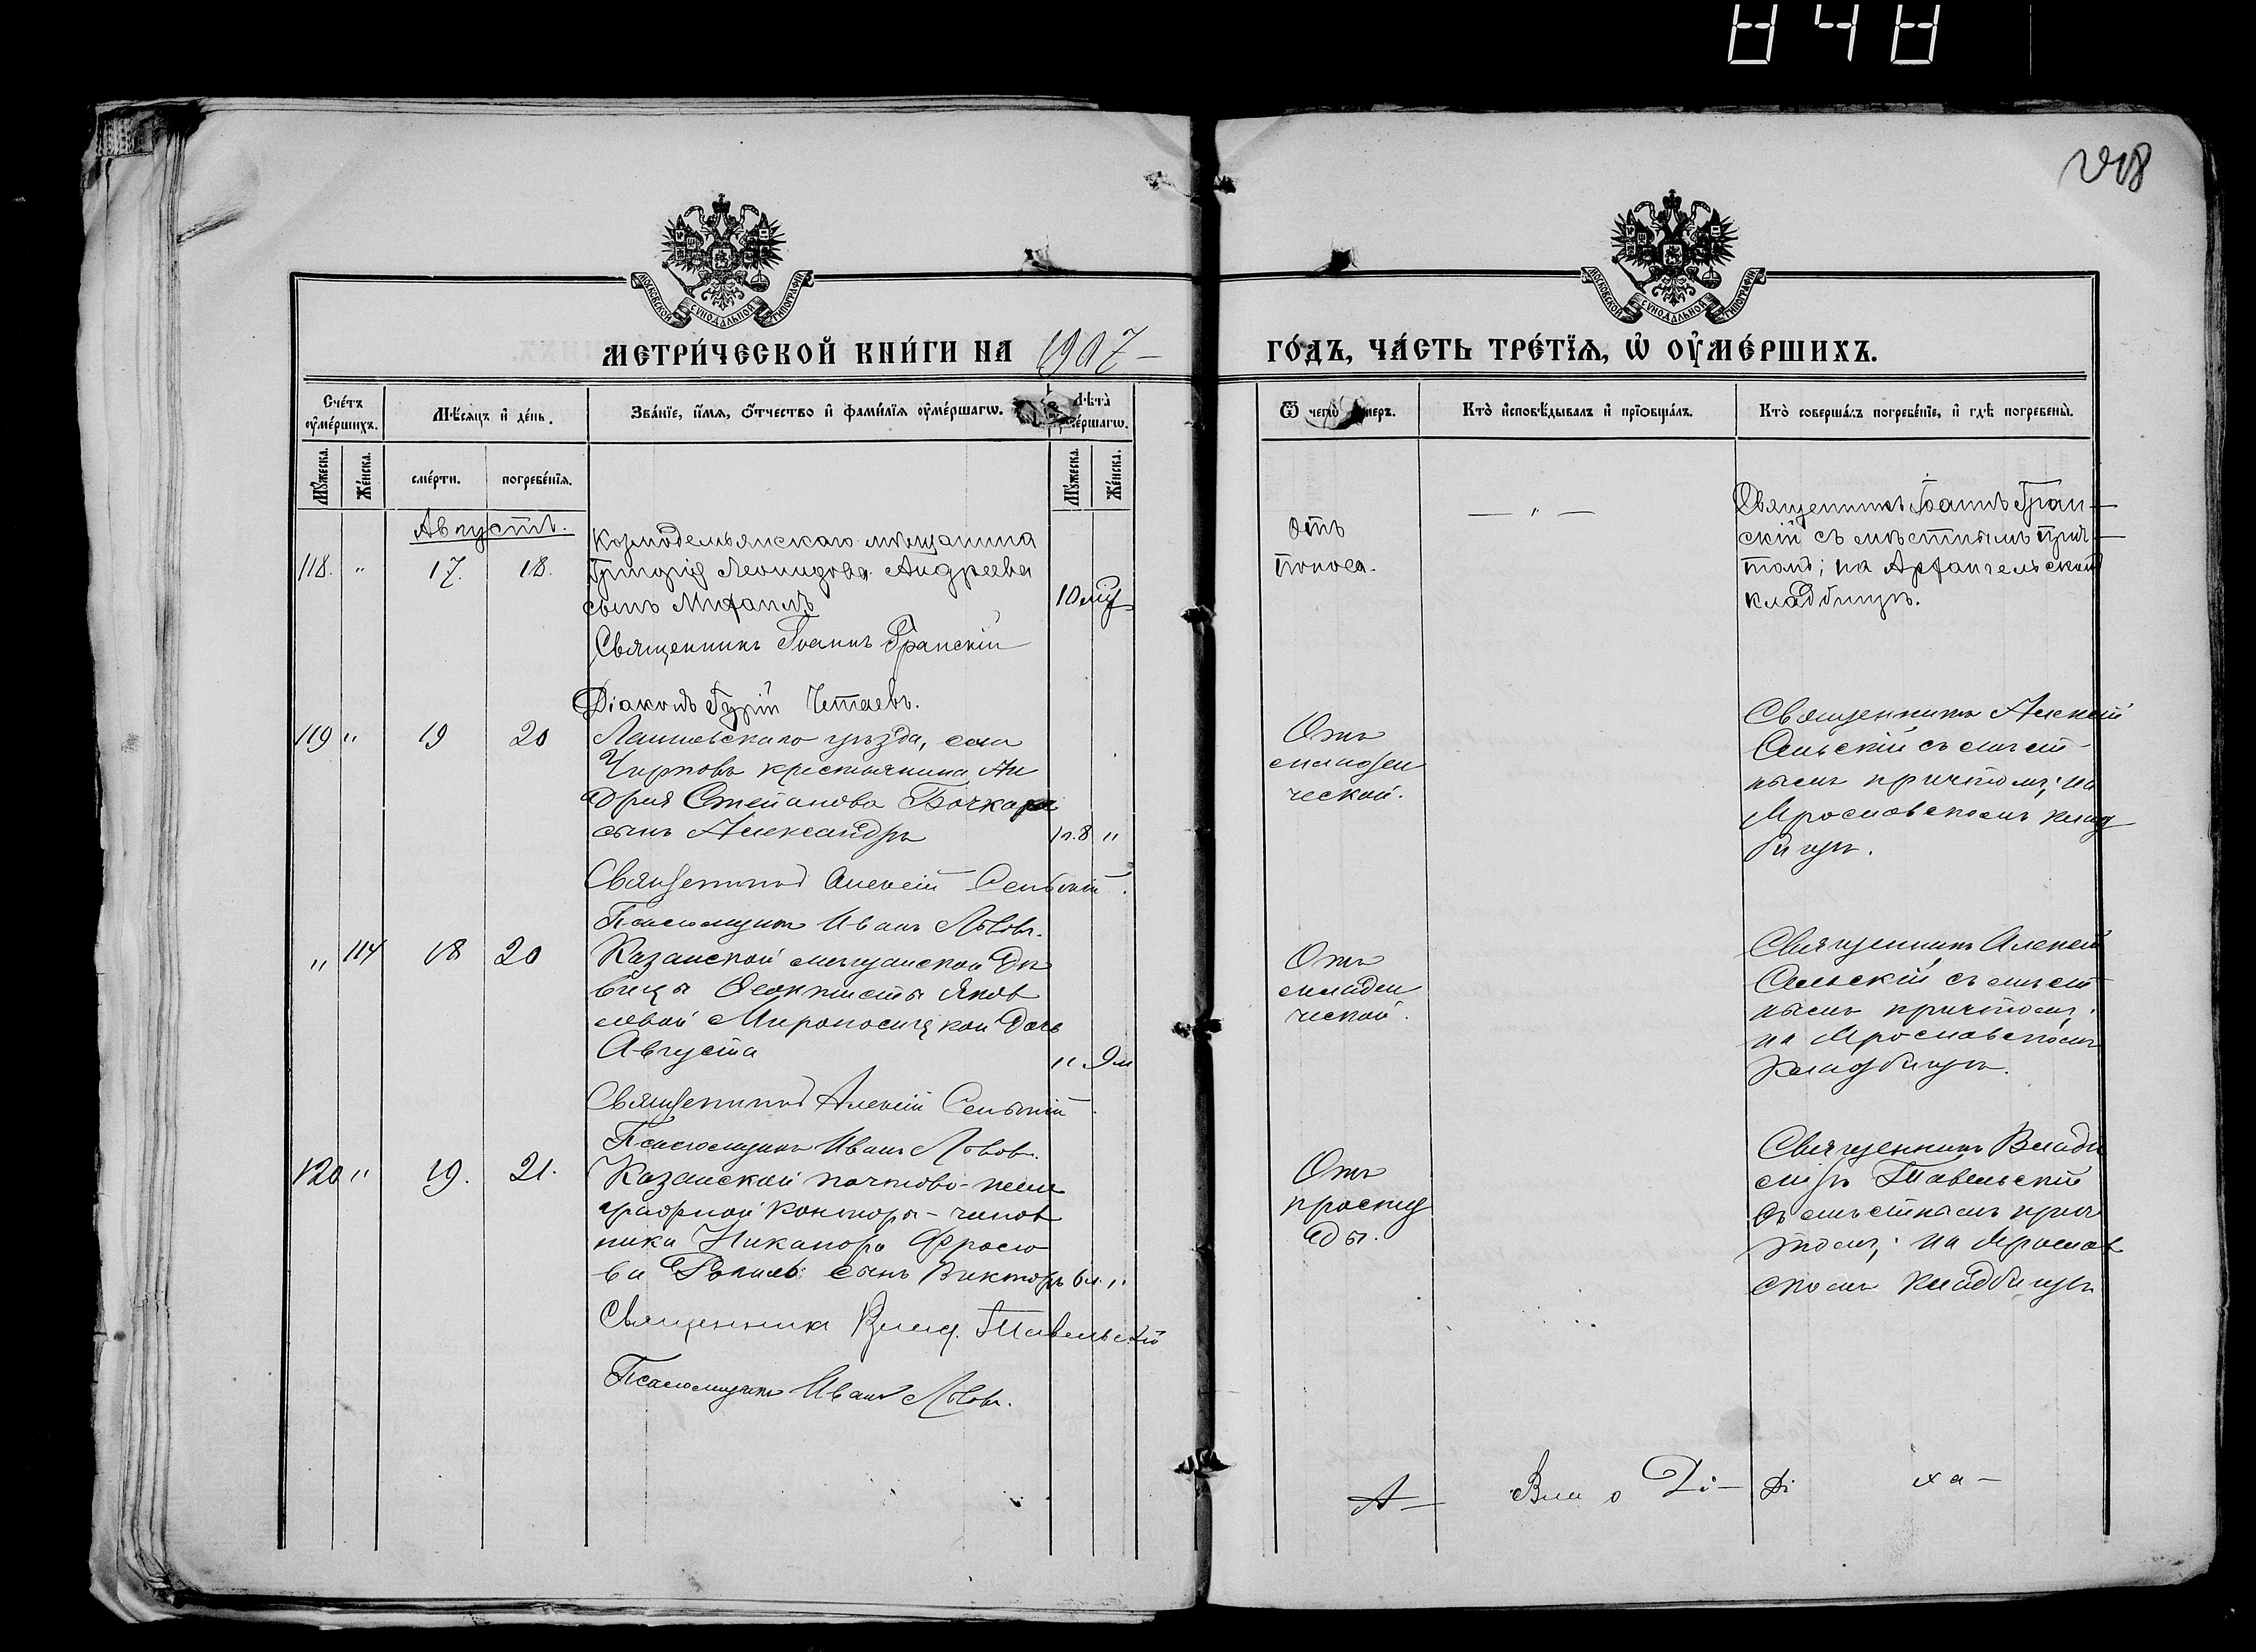 848
248
МОСКОВСКОЙ СУНОДАЛЬНОЙ ТИПОГРАФІИ
МОСКОВСКОЙ СУНОДАЛЬНОЙ ТИПОГРАФІИ
МЕТРИ́ЧЕСКОЙ КНИ́ГИ НА 1907 –
ГО́ДЪ, ЧА́СТЬ ТРЕ́ТЇѦ, Ѡ҆ ОУ҆МЕ́РШИХЪ.
Сче́тъ оу҆ме́ршихъ.
Мѣ́сѧцъ и҆ де́нь.
Зва́нїе, и҆́мѧ, ѻ҆́тчество и҆ фами́лїѧ оу҆ме́ршагѡ.
Лѣта̀
Ѿ чегѡ̀
Кто̀ и҆сповѣ́дывалъ и҆ прїѡбща́лъ.
Кто̀ соверша́лъ погребе́нїе, и҆ гдѣ̀ погребены̀.
Мꙋ́жеска.
Же́нска.
сме́рти.
погребе́нїѧ.
Мꙋ́жеска.
Же́нска.
Августъ.
118. " 17. 18.
Козмодемьянскаго мѣщанина
Григорія Леонидова Андреева
сынъ Михаилъ
10 мц
Отъ
поноса.
— " —
Священникъ Іоаннъ Гран-
скій съ мѣстнымъ прич-
томъ; на Архангельскомъ
кладбищѣ.
Священникъ Іоаннъ Гранскій
Діаконъ Гурій Четаевъ.
119 " 19 20
Лаишевскаго уѣзда, села
Чирповъ крестьянина Ан
дрея Степанова Бочкарева
сынъ Александръ
1 г. 8 "
Отъ
младен
ческой.
Священникъ Алексѣй
Сельскій съ мѣст-
нымъ причтомъ; на
Ярославскомъ клад
бищѣ.
Священникъ Алексѣй Сельскій.
Псаломщикъ Иванъ Львовъ.
" 114 18 20
Казанской мѣщанской дѣ
вицы Феоктисты Яков
левой Мироносицкой дочь
Августа
" 9 м
Отъ
младен
ческой.
Священникъ Алексѣй
Сельскій съ мѣст
нымъ причтомъ;
на Ярославскомъ
кладбищѣ.
Священникъ Алексѣй Сельскій.
Псаломщикъ Иванъ Львовъ.
120 " 19. 21.
Казанской почтово-теле
графной конторы – чинов
ника Никанора Фроло
ва сынъ Викторъ 6 "
Отъ
просту
ды.
Священникъ Влади
міръ Тавельскій
съ мѣстнымъ прич
томъ; на Ярослав
скомъ кладбищѣ
Священникъ Влад. Тавельскій
Псаломщикъ Иванъ Львовъ.
А— Вла о Ді— Ді ха —